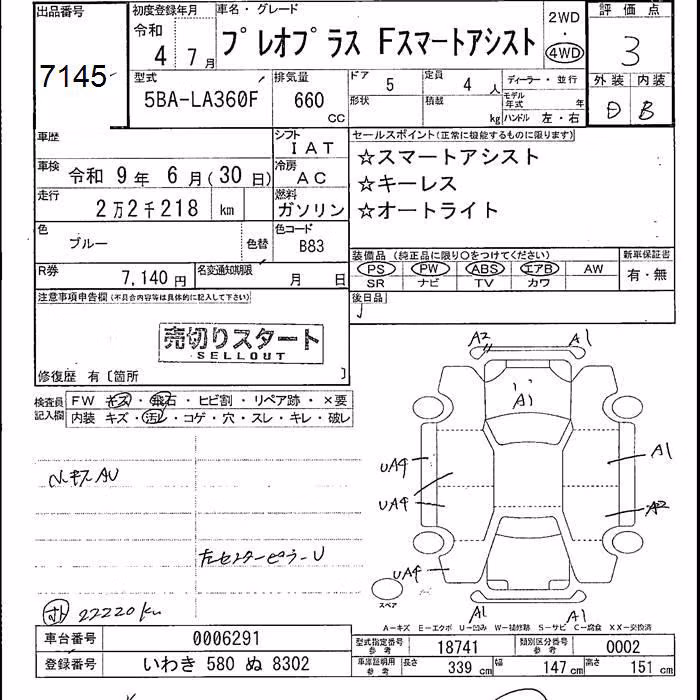 出品番号
7145
初度登録年月
令和
4 7月
車名・グレード
プレオプラス Fスマートアシスト
2WD
・
4WD
評価点
3
型式
5BA-LA360F
排気量
660
CC
ドア
5
定員
4 人
形状
積載
kg
ディーラー・並行
モデル年式 年
ハンドル 左・右
外装 内装
D B
車歴
シフト
IAT
車検
令和 9年 6月(30日)
冷房
AC
走行
2万2千218 km
燃料
ガソリン
色
ブルー
色替
色コード
B83
R券
7,140円
名変通知期限
月 日
セールスポイント(正常に機能するものに限ります)
☆スマートアシスト
☆キーレス
☆オートライト
装備品(純正品に限り○をつけてください)
新車保証書
PS PW ABS エアB AW
有・無
SR ナビ TV カワ
後日品
注意事項申告欄(不具合内容等は具体的に記入して下さい)
売切りスタート
SELLOUT
修復歴 有〔箇所 〕
検査員記入欄
FW キズ・飛石・ヒビ割・リペア跡・×要
内装 キズ・汚レ・コゲ・穴・スレ・キレ・破レ
A2 A1
A1
UA4 A1
UA4 A2
UA4
A1 A1
左センターピラーU
22220km
スペア
A―キズ E―エクボ U―凹み W―補修跡 S―サビ C―腐食 XX―交換済
車台番号
0006291
登録番号
いわき 580 ぬ 8302
型式指定番号
参考
18741
類別区分番号
参考
0002
車庫証明用
参考
長さ 339 cm 幅 147 cm 高さ 151 cm